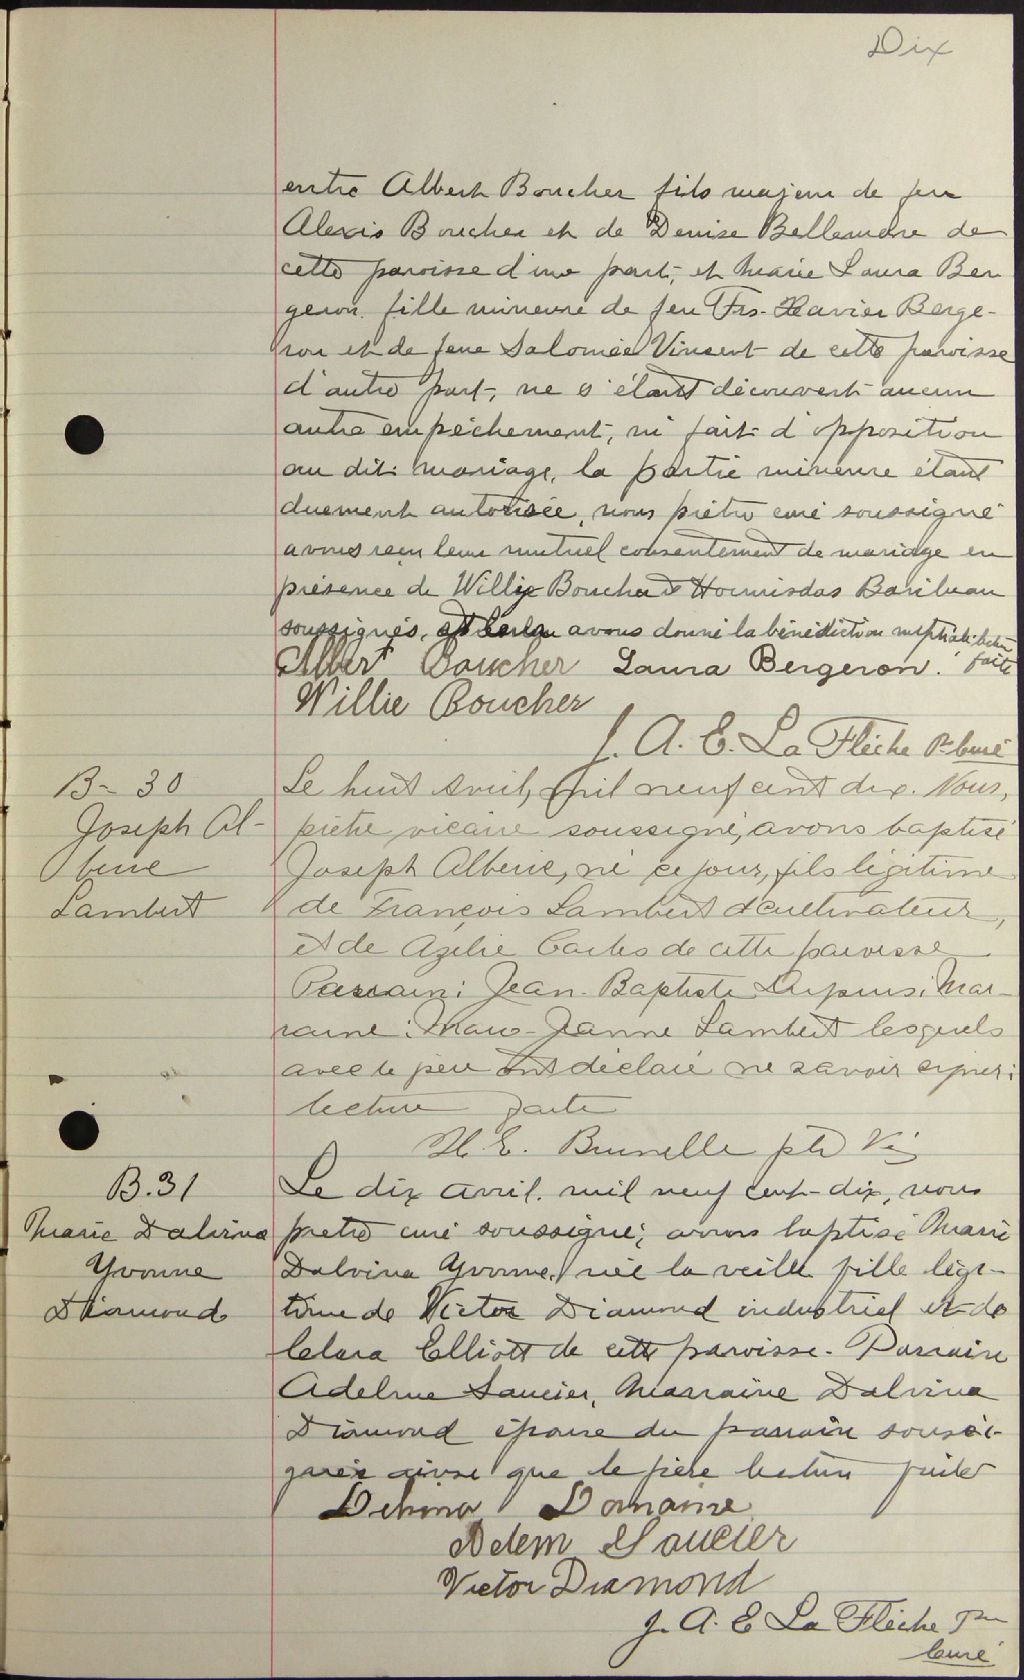 Dix
entre Albert Boucher fils majeur de feu
Alexis Boucher et de Denise Bellemare de
cette paroisse d'une part, et Marie Laura Ber
geron fille mineure de feu Frs-Xavier Berge-
ron et de feue Salomée Vincent de cette paroisse
d'autre part, ne s'étant découvert aucun
autre empêchement, ni fait d'opposition
au dit mariage, la partie mineure étant
duement autorisée, nous prêtre curé soussigné
avons reçu leur mutuel consentement de mariage en
présence de Willie Boucher et Hormisdas Baribeau
soussignés, avons donné la bénédiction nuptiale. lecture
faite
Albert Boucher Laura Bergeron.
Willie Boucher
J. A. E. La Flèche Ptr Curé
B- 30
Joseph Al-
beric
Lambert
Le huit Avril, mil neuf cent dix. Nous,
prêtre vicaire soussigné, avons baptisé
Joseph Alberic, né ce jour, fils légitime
de François Lambert cultivateur,
et de Azélie Carles de cette paroisse
Parrain: Jean-Baptiste Dupuis; Mar-
raine: Marie-Jeanne Lambert lesquels
avec le père ont déclaré ne savoir signer;
lecture faite
H. E. Brunelle ptr Vic
B. 31
Marie Dalvina
Yvonne
Diamond
Le dix avril mil neuf cent-dix, nous
pretre curé soussigné, avons baptisé Marie
Dalvina Yvonne, née la veille fille légi-
time de Victor Diamond industriel et de
Clara Elliott de cette paroisse. Parrain
Saucier, Marraine Dalvina
Diamond épouse du parrain soussi-
gnés ainsi que le père lecture faite
Adem Saucier
Victor Diamond
J. A. E La Flèche Ptr
Curé